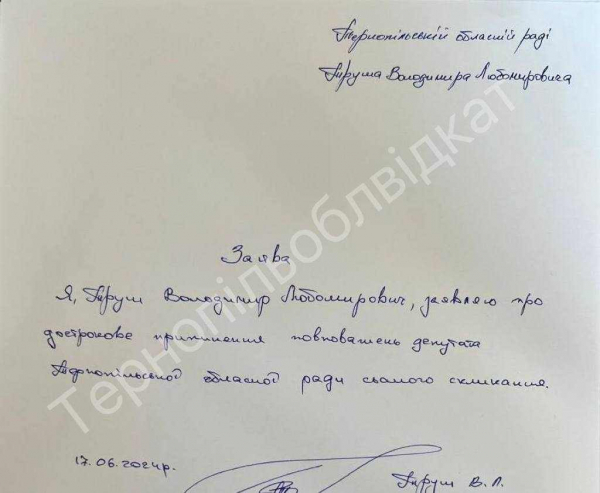 Тернопільській обласній раді
Груша Володимира Любомировича
Заява
Я, Груш Володимир Любомирович, заявляю про
дострокове припинення повноважень депутата
Тернопільської обласної ради сьомого скликання.
17.06.2024р.
Груш В. Л.
Тернопільоблвідкат